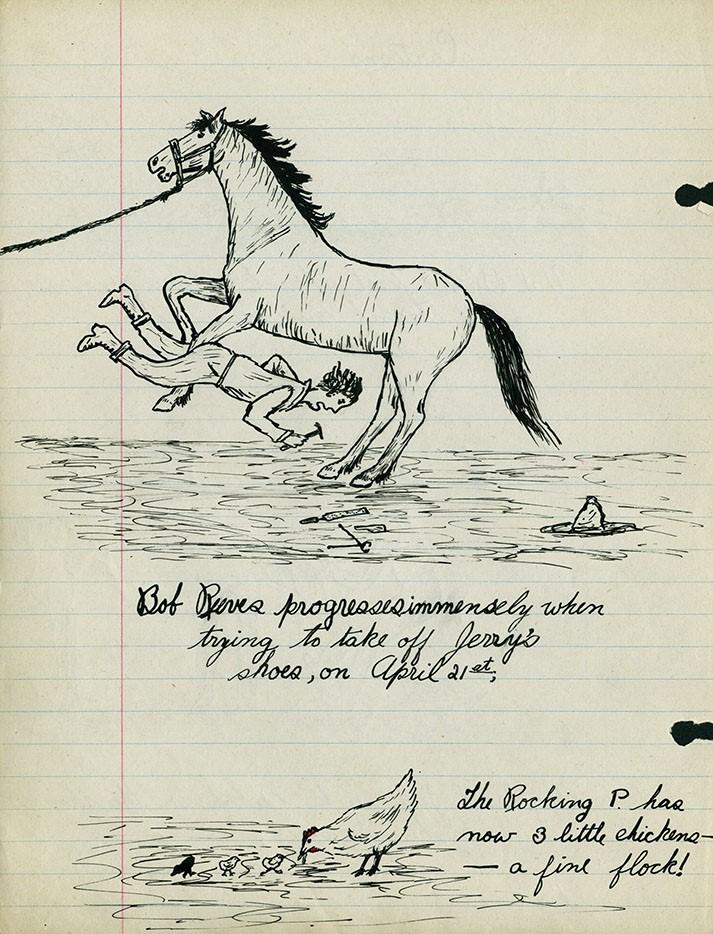 Bob Reeves progresses immensely when
trying to take off Jerry's
shoes, on April 21st,
The Rocking P. has
now 3 little chickens—
— a fine flock!